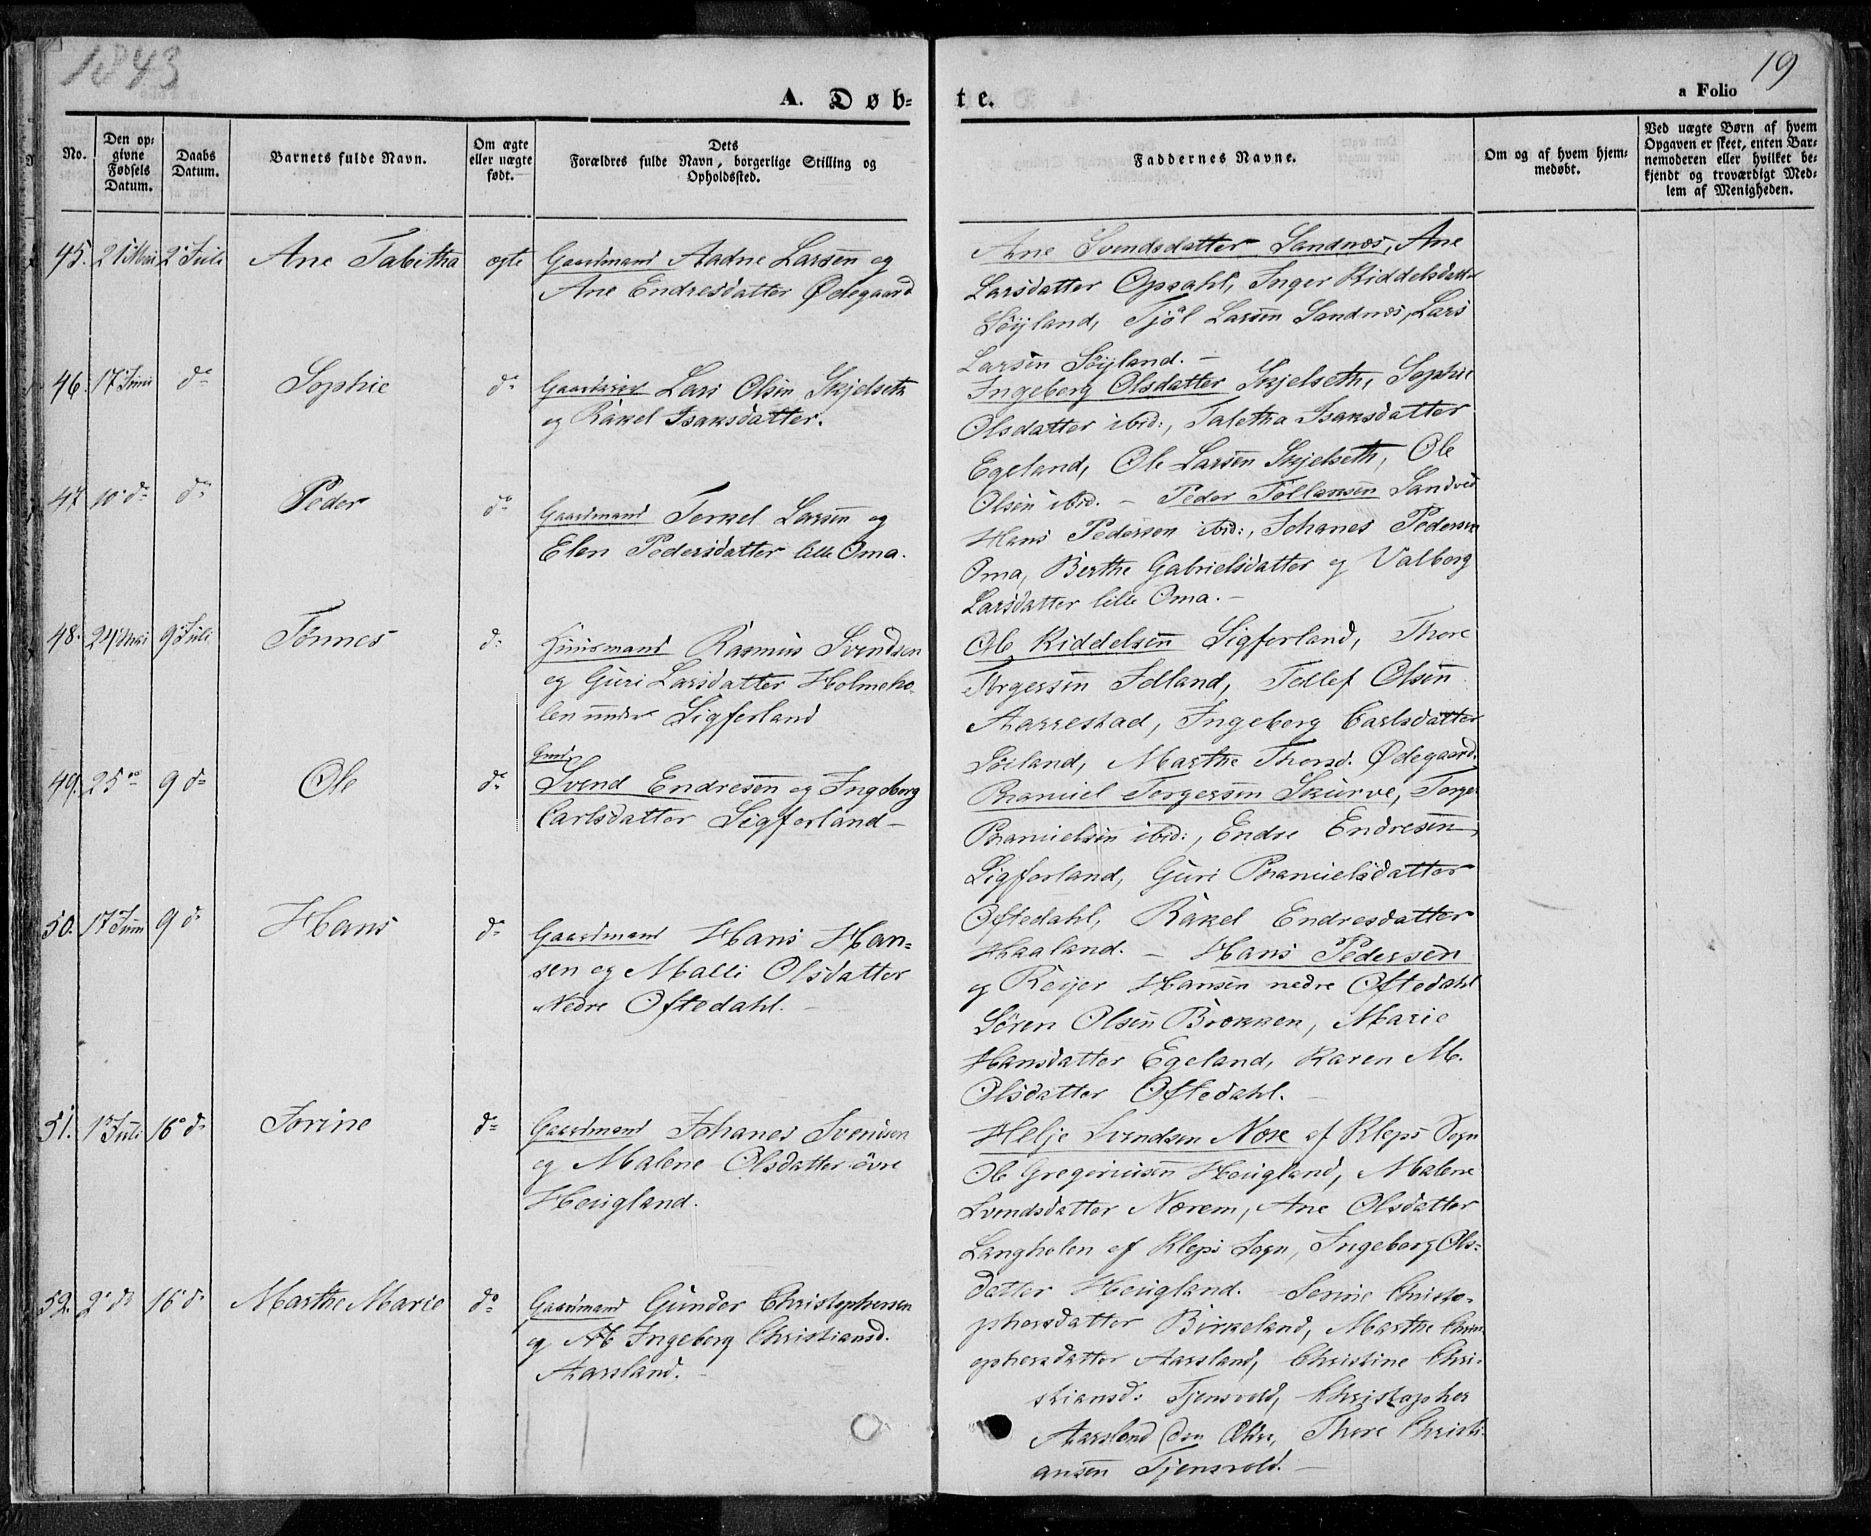 1843
19
A. Døb-
te.
a Folio
No.
Den op-
givne
Fødsels
Datum.
Daabs
Datum.
Barnets fulde Navn.
Om ægte
eller uægte
født.
Dets
Forældres fulde Navn, borgerlige Stilling og
Opholdssted.
Faddernes Navne.
Om og af hvem hjem-
medøbt.
Ved uægte Børn af hvem
Opgaven er skeet, enten Bar-
nemoderen eller hvilket be-
kjendt og troværdigt Med-
lem af Menigheden.
45. 21 Mai 2 Juli Ane Tabitha ægte Gaardmand Aadne Larsen og
Ane Endresdatter Ødegaard
Ane Svendsdatter Sandnæs, Ane
Larsdatter Opsahl, Inger Kiddelsdatter
Söyland, Tjöl Larsen Sandnæs, Lars
Larsen Söyland. –
46. 17 Juni do Sophie do Gaardmand Lars Olsen Skjelseth
og Rakel Isaksdatter.
Ingeborg Olsdatter Skjelseth, Sophie
Olsdatter ibid:, Taletha Isaksdatter
Egeland, Ole Larsen Skjelseth, Ole
Olsen ibid. –
47. 10 do do Peder do Gaardmand Terkel Larsen og
Elen Pedersdatter lille Oma.
Peder Tollaksen Sandved
Hans Pedersen ibid:, Johanes Pedersen
Oma, Berthe Gabrielsdatter og Valborg
Larsdatter lille Oma. –
48. 24 Mai 9 Juli Tönnes do Huusmand Rasmus Svendsen
og Guri Larsdatter Holmeho-
len under Sigferland
Ole Kiddelsen Sigferland, Thore
Torgersen Selland, Tollef Olsen
Aarrestad, Ingeborg Carlsdatter
Soiland, Marthe Thorsd. Ødegaard.
49. 25 do 9 do Ole do Gmd
Svend Endresen og Ingeborg
Carlsdatter Sigferland –
Thamiel Torgersen Skurve, Torger
Thamielsen ibid:, Endre Endresen
Sigferland, Guri Thamielsdatter
Oftedahl, Rakel Endresdatter
Haaland. –
50. 17 Juni 9 do Hans do Gaardmand Hans Han-
sen og Malli Olsdatter
Nedre Oftedahl. –
Hans Pedersen
og Reijer Hansen nedre Oftedahl
Sören Olsen Brekken, Marie
Hansdatter Egeland, Karen M.
Olsdatter Oftedahl. –
51. 1 Juli 16 do Serine do Gaardmand Johanes Svendsen
og Malene Olsdatter övre
Heugland.
Helje Svendsen Nöse af Kleps Sogn
Ole Gregeriusen Heugland, Malene
Svendsdatter Nærem, Ane Olsdatter
Langholen af Kleps Sogn, Ingeborg Ols-
datter Heugland. –
52. 2 do 16 do Marthe Marie do Gaardmand Gunder Christophersen
og Ingeborg Christiansd.
Aarsland. –
Serine Christo-
phersdatter Birkeland, Marthe Christ-
ophersdatter Aarsland, Christine Chri-
stiansd: Tjensvold, Christopher
Aarsland den Ældre, Thore Christi-
ansen Tjensvold. –